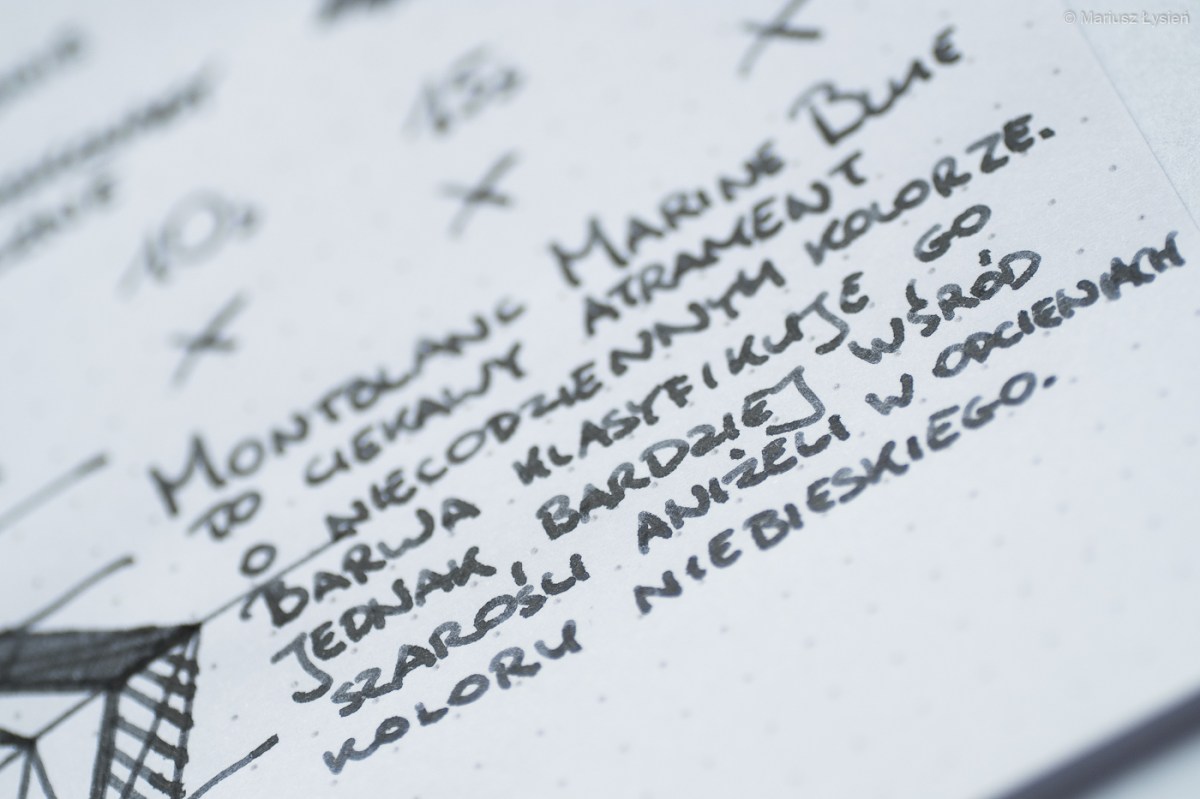 © Mariusz Łysień
15s
10s
MONTBLANC MARINE BLUE
TO CIEKAWY ATRAMENT
O NIECODZIENNYM KOLORZE.
BARWA KLASYFIKUJE GO
JEDNAK BARDZIEJ WŚRÓD
SZAROŚCI ANIŻELI W ODCIENIACH
KOLORU NIEBIESKIEGO.